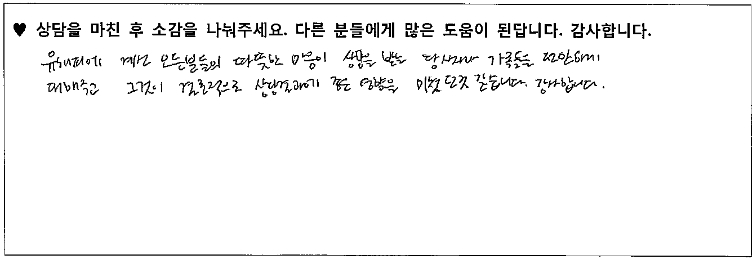 ♥ 상담을 마친 후 소감을 나눠주세요. 다른 분들에게 많은 도움이 된답니다. 감사합니다.
유해피에 계신 모든분들의 따뜻한 마음이 상담을 받는 당사자와 가족들을 편안하게
대해주고 그것이 결론적으로 상담결과에 좋은 영향을 미쳤던것 같습니다. 감사합니다.